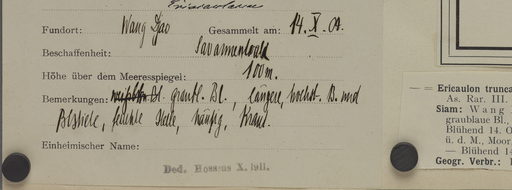 Fundort: Wang Djao Gesammelt am: 14. X. 04.
Beschaffenheit: Savannenwald
Höhe über dem Meeresspiegel: 100 m.
Bemerkungen: Bl. graubl. Bl., längere, hochst. B. und
Blstiele, feuchte Stelle, häufig, Kraut.
Einheimischer Name:
Ded. Hosseus X. 1911.
— = Ericaulon trunca
As. Rar. III.
Siam: Wang
graublaue Bl.,
Blühend 14. O
ü. d. M., Moor
— Blühend 14
Geogr. Verbr.: